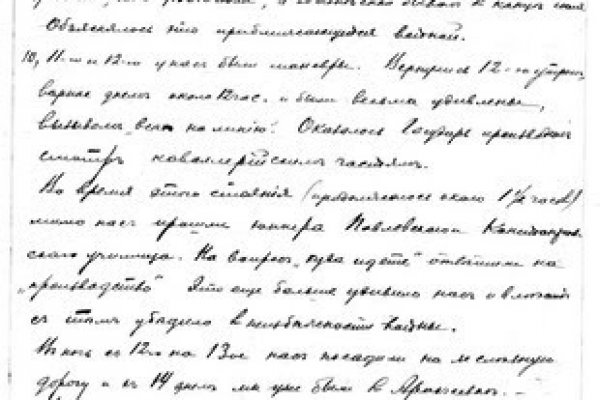 Объяснялось это приближающейся войной.
10, 11-го и 12-го у нас были маневры. Вернулись 12-го утром,
вернее днем около 12 час. и были весьма удивлены,
вызовом "всех на линию". Оказалось Государь производит
смотр кавалерийским частям.
Во время этого стояния (продолжалось около 1½ часов)
мимо нас прошли юнкера Павловского
училища. На вопрос "куда идете" ответили на
"производство". Это еще больше удивило нас и
с тем убедило в неизбежности войны.
В ночь с 12-го на 13-ое нас посадили на железную
дорогу и с 14 днем мы уже были в